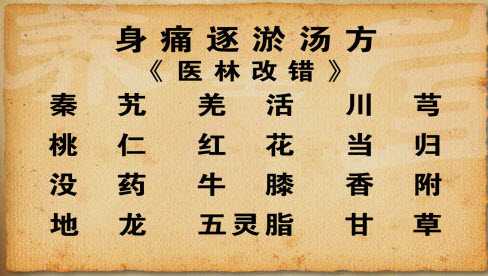 身痛逐淤汤方
《医林改错》
秦艽 羌活 川芎
桃仁 红花 当归
没药 牛膝 香附
地龙 五灵脂 甘草